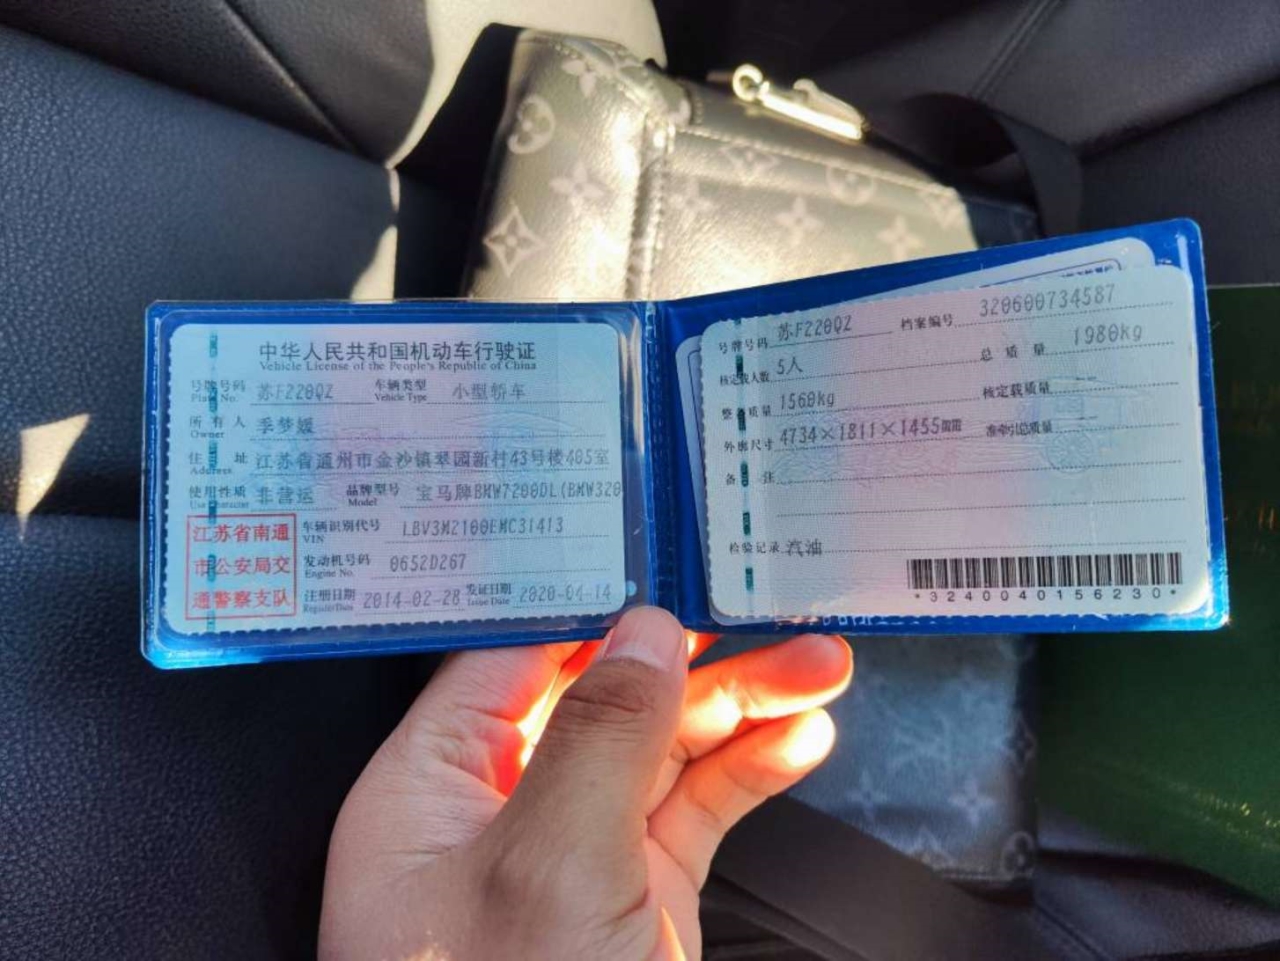 中华人民共和国机动车行驶证
Vehicle License of the People's Republic of China
号牌号码 苏F220QZ 车辆类型 小型轿车
Plate No. Vehicle Type
所有人 季梦媛
Owner
住址 江苏省通州市金沙镇翠园新村43号楼405室
Address
使用性质 非营运 品牌型号 宝马牌BMW7200DL(BMW320
Use Character Model
江苏省南通
市公安局交
通警察支队
车辆识别代号 LBV3M2100EMC31413
VIN
发动机号码 0652D267
Engine No.
注册日期 2014-02-28 发证日期 2020-04-14
Register Date Issue Date
号牌号码 苏F220QZ 档案编号 320600734587
核定载人数 5人 总质量 1980kg
整备质量 1560kg 核定载质量
外廓尺寸 4734×1811×1455 准牵引总质量
备注
检验记录 汽油
*3240040156230*